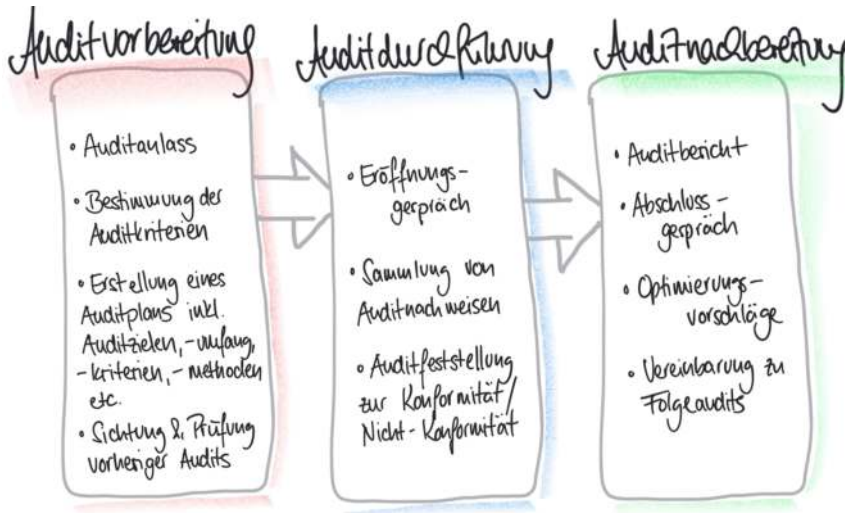 Auditvorbereitung
• Auditanlass
• Bestimmung der
Auditkriterien
• Erstellung eines
Auditplans inkl.
Auditzielen, -umfang,
-kriterien, -methoden
etc.
• Sichtung & Prüfung
vorheriger Audits
Auditdurchführung
• Eröffnungs-
gespräch
• Sammlung von
Auditnachweisen
• Auditfeststellung
zur Konformität/
Nicht-Konformität
Auditnachbereitung
• Auditbericht
• Abschluss-
gespräch
• Optimierungs-
vorschläge
• Vereinbarung zu
Folgeaudits